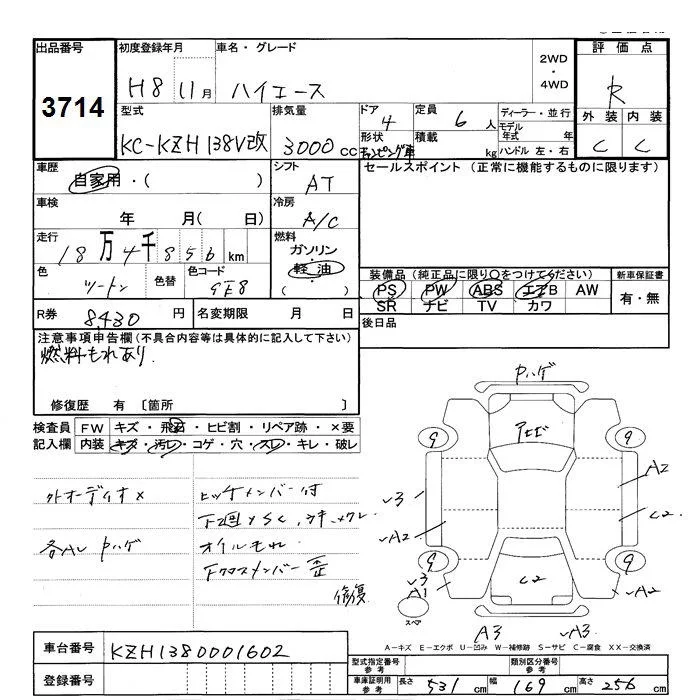 出品番号
3714
初度登録年月
H8 11月
車名・グレード
ハイエース
2WD
・
4WD
評価点
R
型式
KC-KZH138V改
排気量
3000 cc
ドア
4
形状
キャンピング車
定員
6 人
積載
kg
ディーラー・並行
モデル
年式 年
ハンドル 左・右
外装 内装
C C
車歴
自家用・( )
シフト
AT
セールスポイント (正常に機能するものに限ります)
車検
年 月( 日)
冷房
A/C
走行
18万4千856km
燃料
ガソリン
軽油
( )
色
ツートン
色替
色コード
9E8
装備品(純正品に限り○をつけてください)
新車保証書
PS PW ABS エアB AW
SR ナビ TV カワ
有・無
R券
8,430 円
名変期限 月 日
後日品
注意事項申告欄(不具合内容等は具体的に記入して下さい)
燃料もれあり
修復歴 有 〔箇所 〕
検査員
記入欄
FW キズ・飛石・ヒビ割・リペア跡・×要
内装 キズ・汚レ・コゲ・穴・スレ・キレ・破レ
外オーディオ×
ヒッチメンバー付
各AL
オイルもれ
Fクロスメンバー歪
修復
9
9
9
9
A2
C2
A2
ヽ3
A2
ヽ3
A1
C2
A3
A3
スペア
A-キズ E-エクボ U-凹み W-補修跡 S-サビ C-腐食 XX-交換済
車台番号
KZH1380001602
登録番号
型式指定番号
参考
類別区分番号
参考
車庫証明用
参考
長さ 531 cm
幅 169 cm
高さ 256 cm